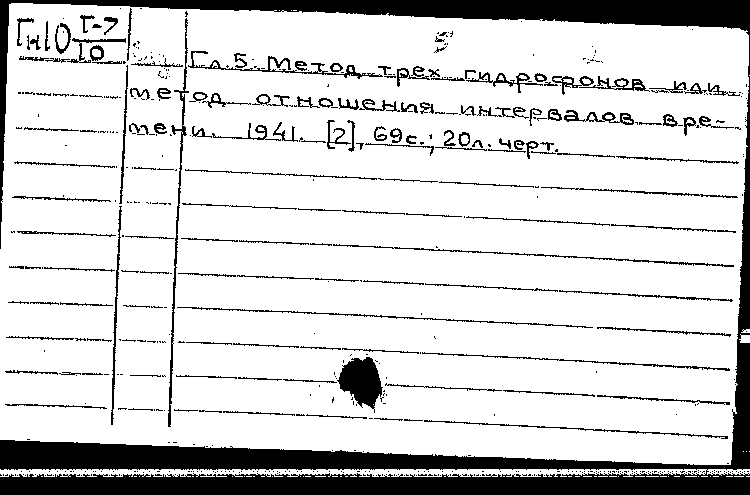 Гн10 Г-7/10
5 2
Гл. 5. Метод трех гидрофонов или
метод отношения интервалов вре-
мени. 1941. [2], 69с.; 20л. черт.